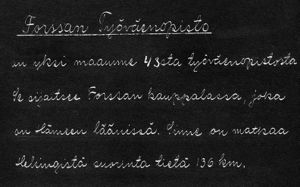 Forssan Työväenopisto
on yksi maamme 43sta työväenopistosta
Se sijaitsee Forssan kauppalassa, joka
on Hämeen läänissä. Sinne on matkaa
Helsingistä suorinta tietä 136 km.